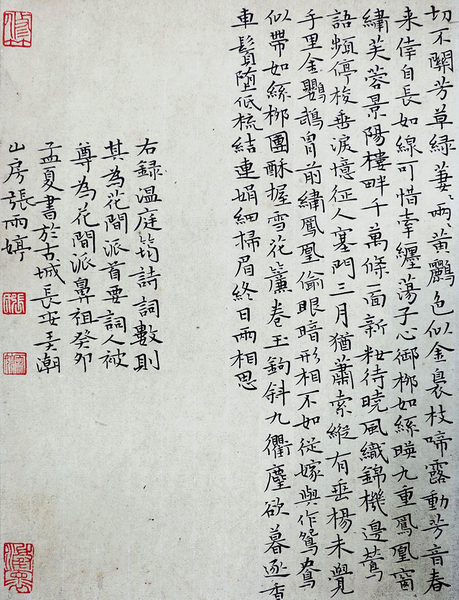 切不關芳草綠萋〻兩〻黃鸝色似金裊枝啼露動芳音春
来倖自長如線可惜牽纏蕩子心御柳如絲暎九重鳳凰窗
繡芙蓉景陽樓畔千萬條一面新粧待曉風織錦機邊鶯
語頻停梭垂淚憶征人塞門三月猶蕭索縱有垂楊未覺
手里金鸚鵡胷前繡鳳凰偷眼暗形相不如從嫁與作鴛鴦
似帶如絲柳團酥握雪花簾卷玉鉤斜九衢塵欲暮逐香
車鬢墮低梳結連娟細掃眉終日兩相思
右録温庭筠詩詞數則
其為花間派首要詞人被
尊為花間派鼻祖癸卯
孟夏書於古城長安美潮
山房張雨婷